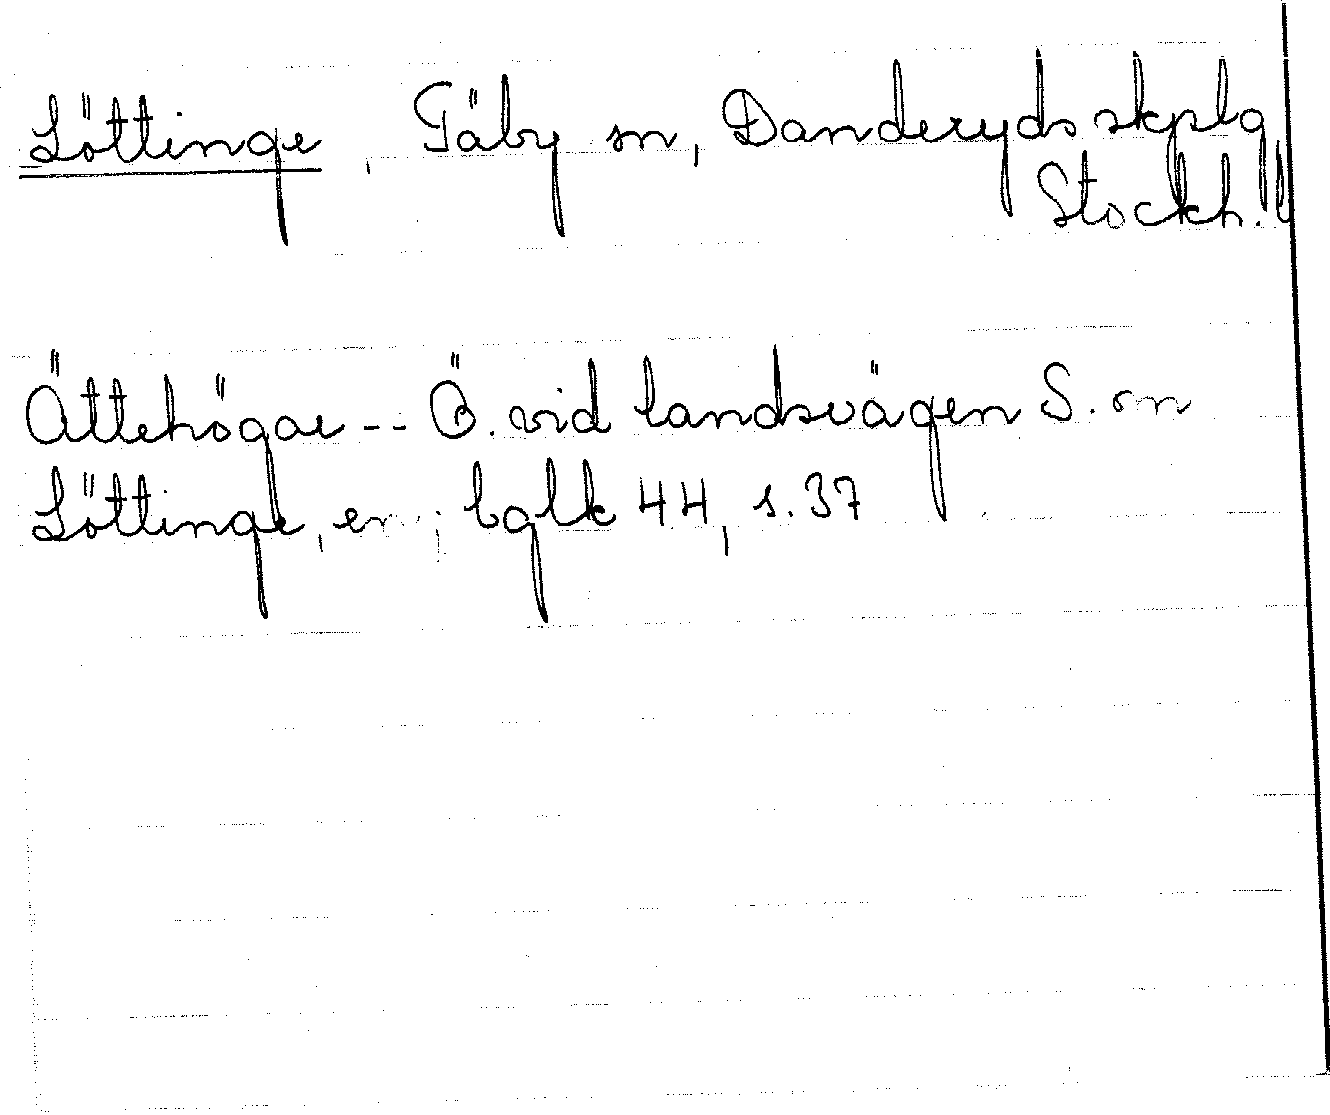 Löttinge, Täby sn, Danderyds skplg
Stockh. l
Ättehögar -- Ö. vid landsvägen S. om
Löttinge, en; bglk 44, s. 37